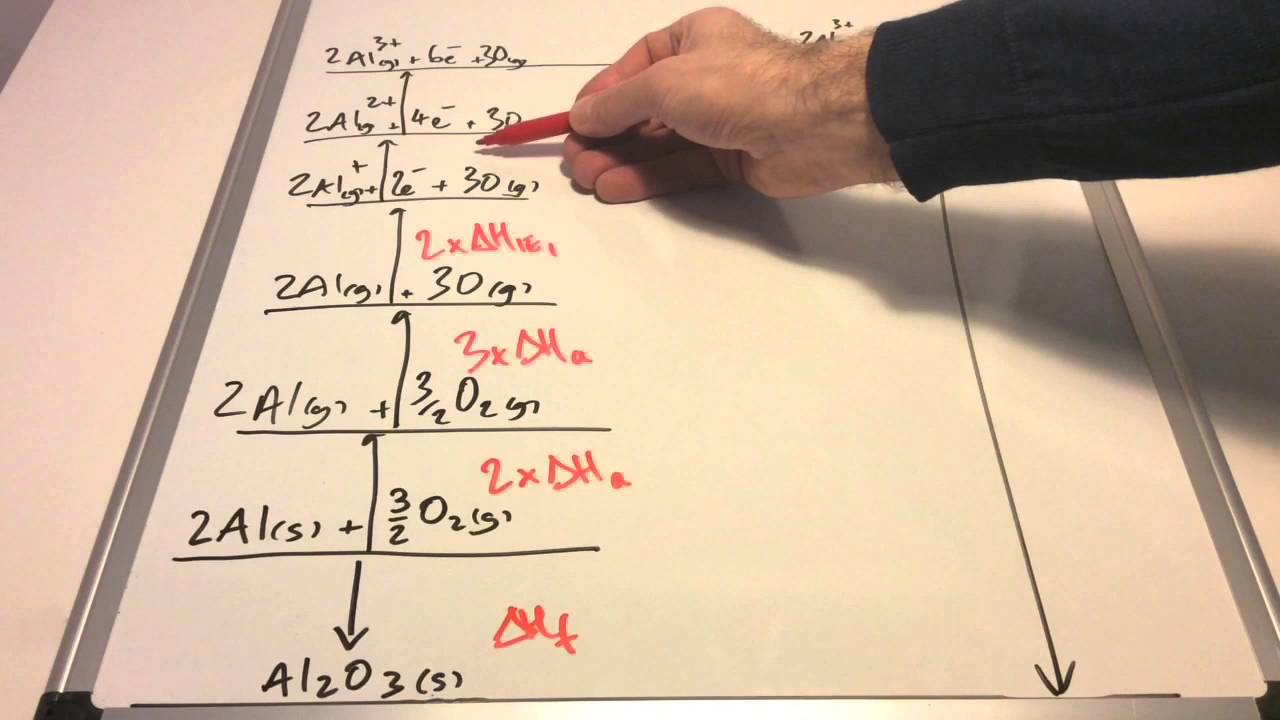 2Al³⁺(g) + 6e⁻ + 3O(g)
2Al³⁺
2Al²⁺(g) + 4e⁻ + 3O
2Al⁺(g) + 2e⁻ + 3O(g)
2×ΔH IE₁
2Al(g) + 3O(g)
3×ΔHₐ
2Al(g) + 3/2 O₂(g)
2×ΔHₐ
2Al(s) + 3/2 O₂(g)
ΔHf
Al₂O₃(s)